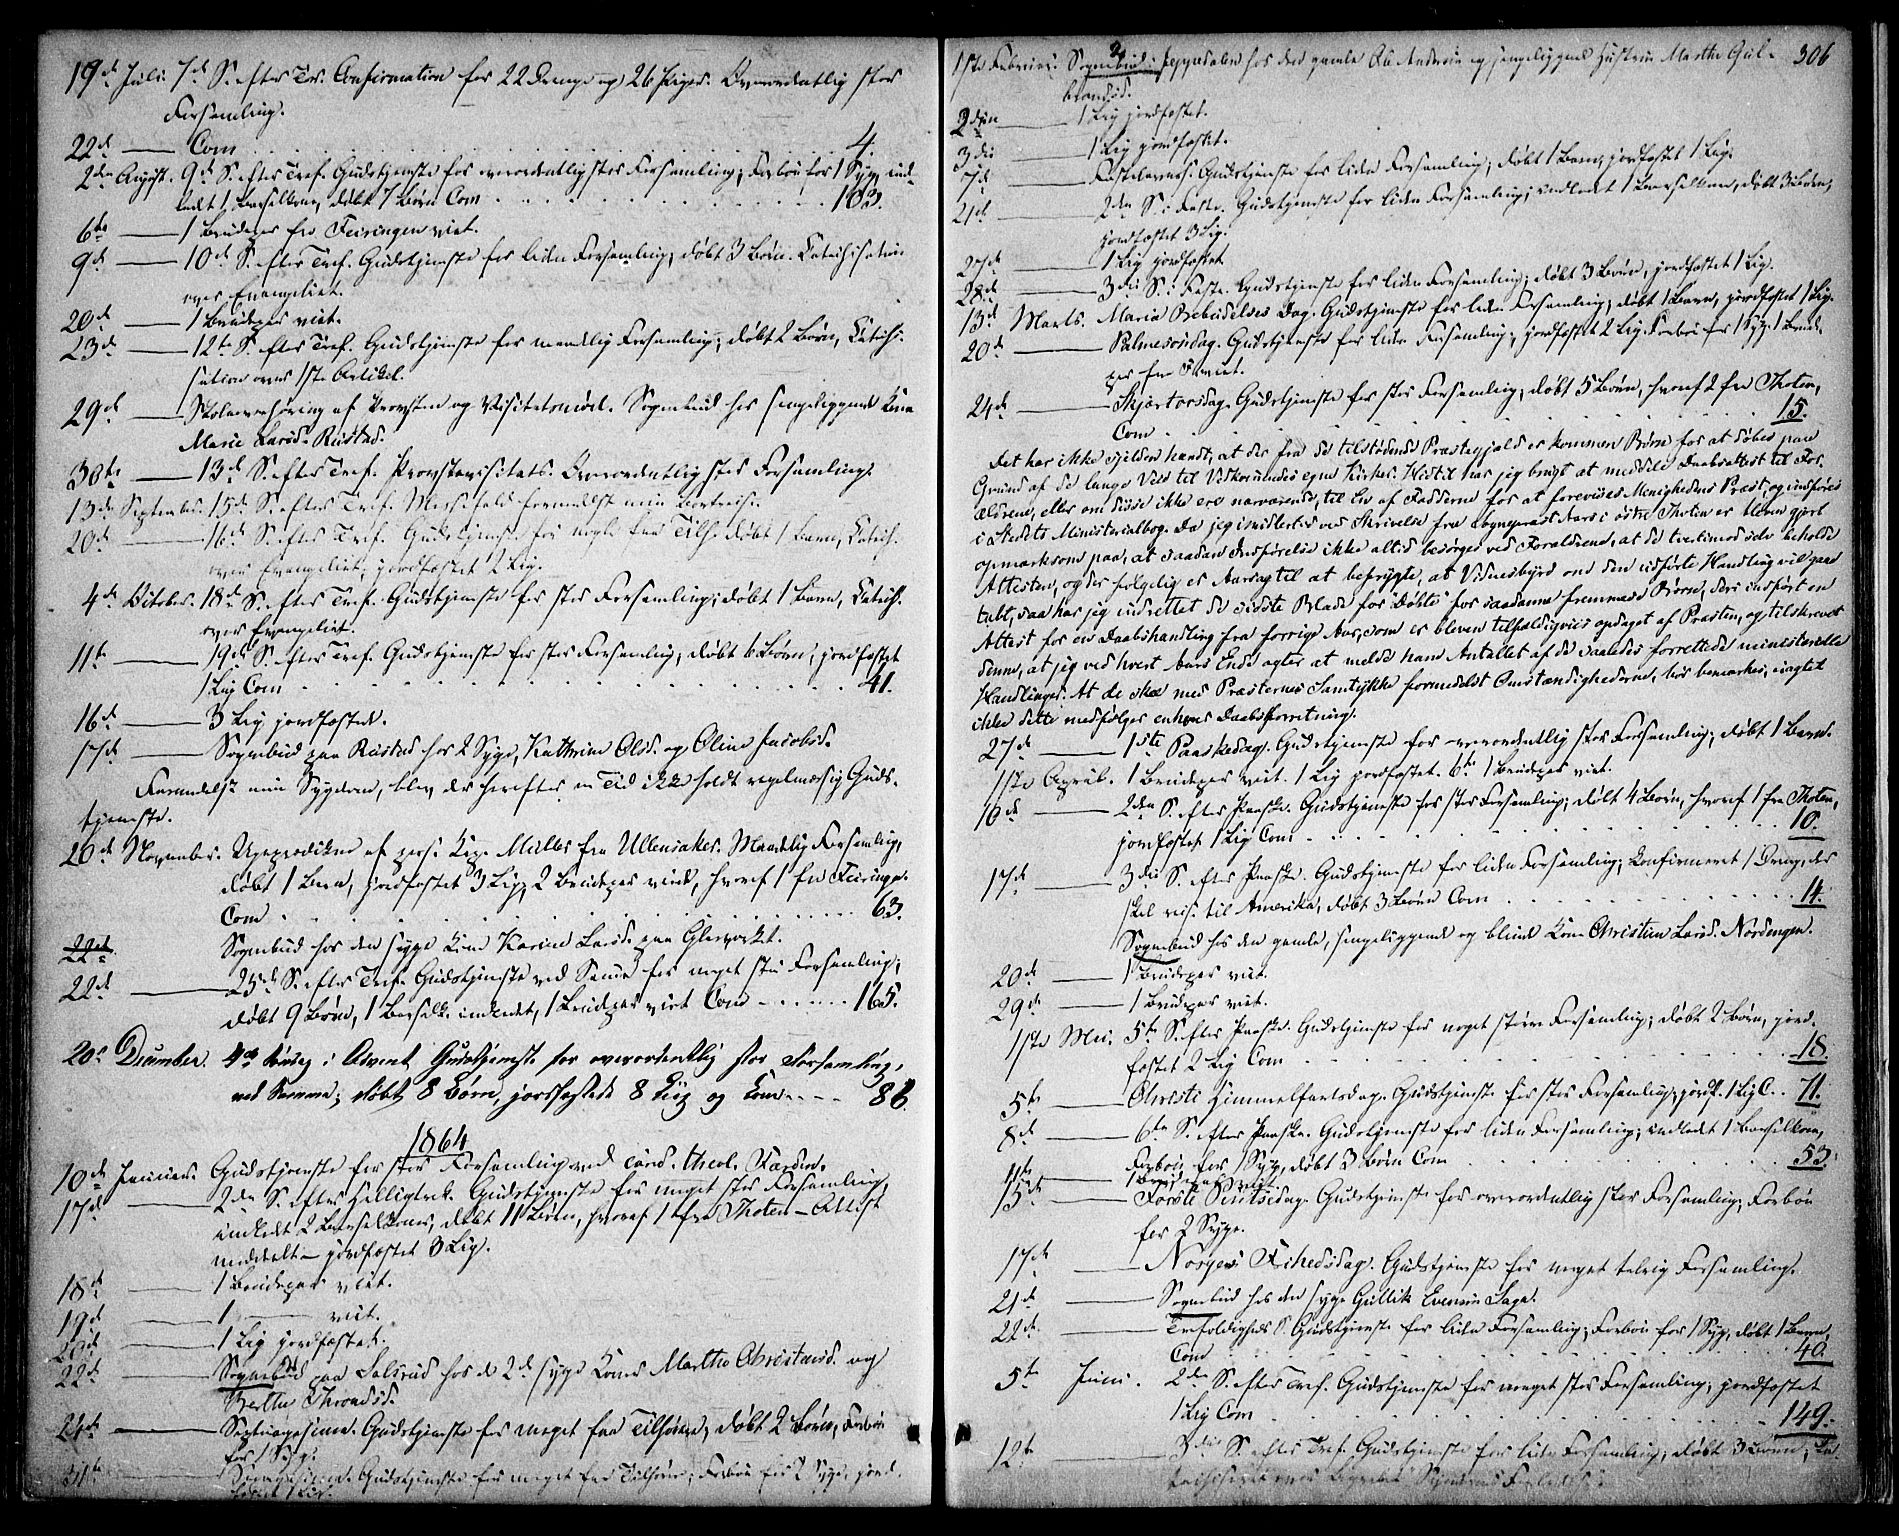 19de Juli. 7de S. efter Tr. Confirmation for 22 Drenge og 26 Piger. Overordentlig stor
Forsamling.
22de — Com . . . 4.
2den August. 9de S. efter Tref. Gudstjeneste for overordentlig stor Forsamling; Forbøn for 1 Syg, ind-
ledt 1 Barselkone, døbt 7 Børn Com . . . 103.
6te — 1 Brudepar fra Feiringen viet.
9de — 10de S. efter Tref. Gudstjeneste for liden Forsamling, døbt 3 Børn. Catechisation
over Evangeliet.
20de — 1 Brudepar viet.
23de — 12te S. efter Tref. Gudstjeneste for maadelig Forsamling; døbt 2 Børn, Catechi-
sation over 1ste Artikel.
29de — Skoleoverhøring af Provsten og Visitatsmøde. Sognebud hos sengeliggende Kone
Marie Larsd. Rustad.
30te — 13de S. efter Tref. Provstevisitats. Overordentlig stor Forsamling.
13de September. 15de S. efter Tref. Messefald formedelst min Bortreise.
20de — 16de S. efter Tref. Gudstjeneste for nogle faa Tilh. døbt 1 Barn, Catech.
over Evangeliet, jordfæstet 2 Lig.
4de October. 18de S. efter Tref. Gudstjeneste for stor Forsamling; døbt 1 Barn, Catech.
over Evangeliet.
11te — 19de S. efter Tref. Gudstjeneste for stor Forsamling, døbt 6 Børn, jordfæstet
1 Lig Com . . . 41.
16de — 3 Lig jordfæstede.
17de — Sognebud paa Rustad hos 2 Syge, Kathrine Olsd. og Oline Jacobsd.
Formedelst min Sygdom, blev der herefter en Tid ikke holdt regelmæssig Guds-
tjeneste.
20de November. Ugeprædiken af pers. Cap. Müller fra Ullensaker. Maadelig Forsamling,
døbt 1 Barn, jordfæstet 3 Lig, 2 Brudepar viet, hvoraf 1 fra Feiringen.
Com . . . 63.
22de Sognebud hos den syge Kone Karine Larsd. paa Glasværket.
22de — 25de S. efter Tref. Gudstjeneste ved Samme for meget stor Forsamling;
døbt 9 Børn, 1 Barselk. indledet, 1 Brudepar viet Com . . . 165.
20de December. 4de Søndag i Advent Gudstjeneste for overordentlig stor Forsamling,
ved Samme; døbt 8 Børn, jordfæstede 8 Liig og Com . . . 86.
1864
10de Januar. Gudstjeneste for stor Forsamling ved cand. theol. Færden.
17de — 2den S. efter Helligtrek. Gudstjeneste for meget stor Forsamling,
indledt 2 Barselkoner, døbt 11 Børn, hvoraf 1 fra Thoten – Attest
meddeelt – jordfæstet 3 Lig.
18de — 1 Brudepar viet.
19de — 1 — viet.
20de — 1 Lig jordfæstet.
22de — Sognebud paa Julsrud hos de 2de syge Koner Marthe Christensd. og
Berthe Throndsd.
24de — Septuagesima. Gudstjeneste for meget faa Tilhørere, døbt 2 Børn, Forbøn
for 1 Syg.
31te — Sexagesima. Gudstjeneste for meget faa Tilhørere; Forbøn for 2 Syge, jord-
fæstet 1 Lig.
306
1ste Februar. Sognebud i Jeppedalen hos den gamle Ole Andersen og sengeliggende Hustru Marthe Gul-
brandsd.
2den — 1 Lig jordfæstet.
3die — 1 Lig jordfæstet.
7de — Fastelavnss. Gudstjeneste for liden Forsamling, døbt 1 Barn, jordfæstet 1 Lig.
21de — 2den S. i Faste. Gudstjeneste for liden Forsamling; indledt 1 Barselkone, døbt 3 Børn,
jordfæstet 3 Lig.
27de — 1 Lig jordfæstet
28de — 3die S. i Faste. Gudstjeneste for liden Forsamling; døbt 3 Børn, jordfæstet 1 Lig.
13de Marts. Maria Bebudelses Dag. Gudstjeneste for liden Forsamling; døbt 1 Barn, jordfæstet 1 Lig.
20de — Palmesøndag. Gudstjeneste for liden Forsamling, jordfæstet 2 Lig. Forbøn for 1 Syg. 1 Brude-
par fra viet.
24de — Skjærtorsdag. Gudstjeneste for stor Forsamling, døbt 5 Børn, hvoraf 2 fra Thoten,
Com . . . 15.
Det har ikke sjelden hændt, at der fra de tilstødende Præstegjeld er kommen Børn for at døbes paa
Grund af de lange Veie til Vedkommendes egne Kirker. Hidtil har jeg brugt at meddele Daabsattest til For-
ældrene, eller om disse ikke ere nærværende, til En af Fadderne for at forevises Menighedens Præst, og indføres
i Stedets Ministerialbog. Da jeg imidlertid ved Skrivelse fra Sogneprest Aars i østre Thoten er bleven gjort
opmærksom paa, at saadan Indførelse ikke altid besørges ved Forældrene, at de tvertimod selv beholde
Attesten, og der følgelig er Aarsag til at befrygte, at Vidnesbyrd om den udførte Handling vil gaae
tabt, saa har jeg indrettet de sidste Blade for "Døbte" for saadanne fremmede Børn, deri indført en
Attest for en Daabshandling fra forrige Aar, som er bleven tilfældigviis opdaget af Præsten, og tilskrevet
denne, at jeg ved hvert Aars Ende agter at melde ham Antallet af de saaledes forrettede ministerielle
Handlinger. At de skee med Præsternes Samtykke formedelst Omstændighederne, bør bemærkes, uagtet
ikke dette medfølger enhver Daabsforretning.
27de — 1ste Paaskedag. Gudstjeneste for overordentlig stor Forsamling, døbt 1 Barn.
1ste April. 1 Brudepar viet. 1 Lig jordfæstet. 6te 1 Brudepar viet.
10de — 2den S. efter Paaske. Gudstjeneste for stor Forsamling; døbt 4 Børn, hvoraf 1 fra Thoten,
jordfæstet 1 Lig Com . . . 10.
17de — 3die S. efter Paaske. Gudstjeneste for liden Forsamling; Konfirmeret 1 Dreng, der
skal reise til Amerika, døbt 3 Børn Com . . . 14.
Sognebud hos den gamle, sengeliggende og blinde Kone Christine Larsd. Nordengen.
20de — 1 Brudepar viet.
29de — 1 Brudepar viet.
1ste Mai. 5te S. efter Paaske. Gudstjeneste for noget større Forsamling; døbt 2 Børn, jord-
fæstet 2 Lig Com . . . 18.
5te — Christi Himmelfartsdag. Gudstjeneste for stor Forsamling, jordf. 1 Lig C. . 71.
8de — 6te S. efter Paaske. Gudstjeneste for liden Forsamling; indledt 1 Barselkone,
Forbøn for 1 Syg, døbt 3 Børn Com . . . 53.
11te — 1 Brudepar viet.
15de — Første Pintsedag. Gudstjeneste for overordentlig stor Forsamling, Forbøn
for 2 Syge.
17de — Norges Frihedsdag. Gudstjeneste for meget talrig Forsamling.
21de — Sognebud hos den syge Gullik Evensen Sagen.
22de — Trefoldigheds S. Gudstjeneste for liden Forsamling; Forbøn for 1 Syg, døbt 1 Barn,
Com . . . 40.
5te Juni. 2den S. efter Tref. Gudstjeneste for meget stor Forsamling; jordfæstet
1 Lig Com . . . 149.
12te — 3die S. efter Tref. Gudstjeneste for liden Forsamling, døbt 3 Børn, Ca-
techiseret over Begrebet Syndernes Forladelse.